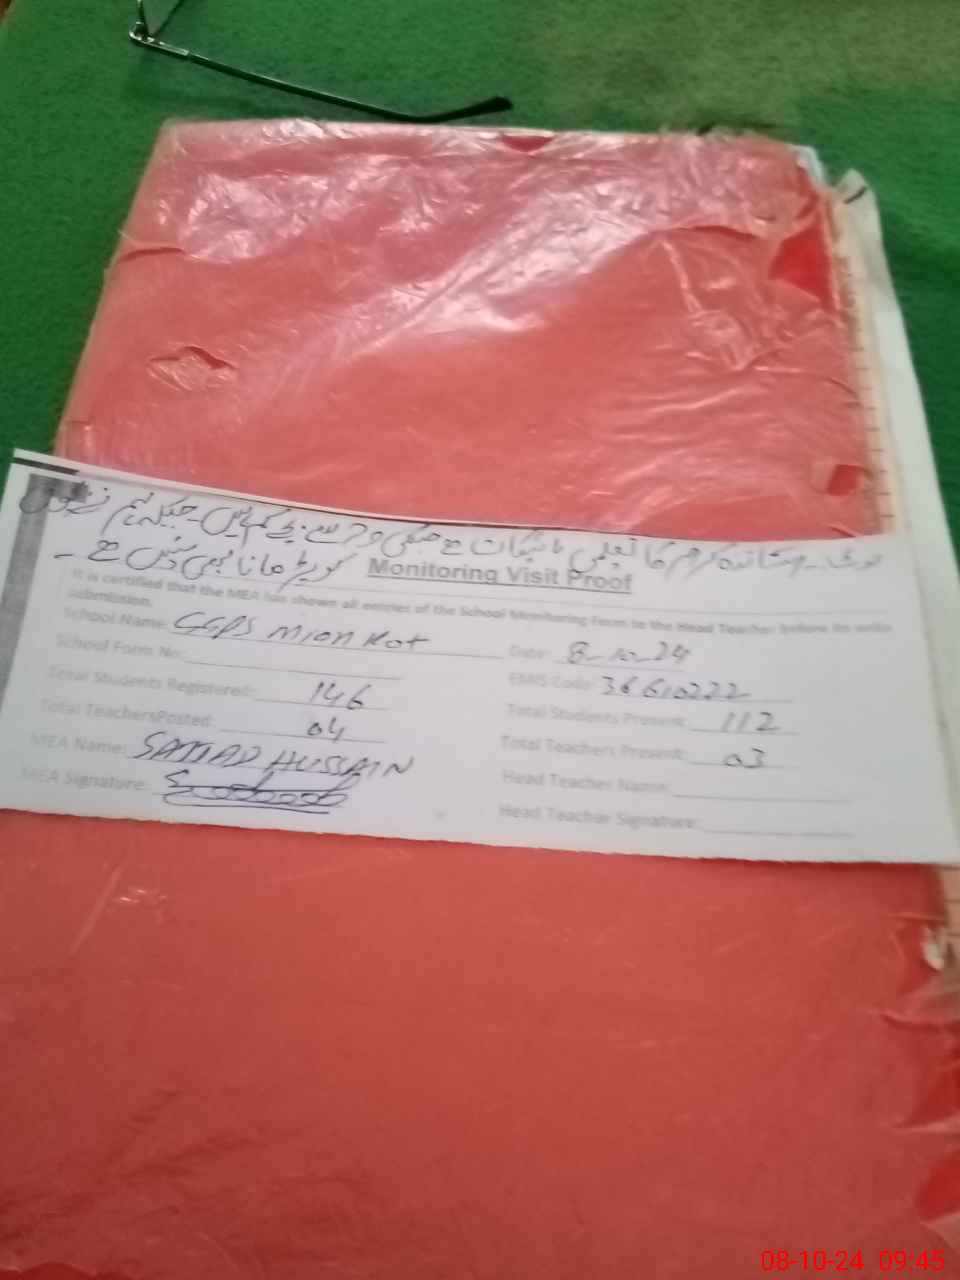 نوٹ - اساتذہ کرام کا تعلیمی بائیکاٹ ہے جسکی وجہ سے بچے کم ہیں - جبکہ ہم نے
کو بڑھانا بھی نہیں ہے -
Monitoring Visit Proof
It is certified that the MEA has shown all entries of the School Monitoring Form to the Head Teacher before its
submission.
School Name: GGPS MIAN KOT Date: 8-10-24
School Form No: EMIS Code: 36610222
Total Students Registered: 146 Total Students Present: 112
Total TeachersPosted: 04 Total Teachers Present: 03
MEA Name: SAJJAD HUSSAIN Head Teacher Name:
MEA Signature: Head Teacher Signature:
08-10-24 09:45